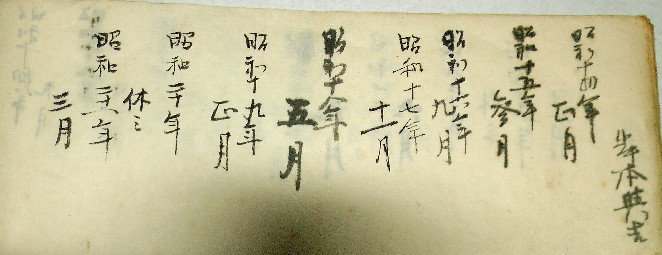 昭和十四年
正月
昭和十五年
参月
昭和十六年
九月
昭和十七年
十一月
昭和十八年
五月
昭和十九年
正月
昭和二十年
休ミ
昭和二十一年
三月